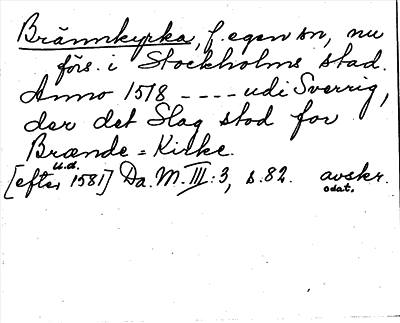 Brännkyrka, f. egen sn, nu
förs. i Stockholms stad.
Anno 1518 ---- udi Sverrig,
der det Slag stod for
Brænde=Kirke.
u.å.
[efter 1581] Da. M. III:3, s. 82. avskr.
odat.